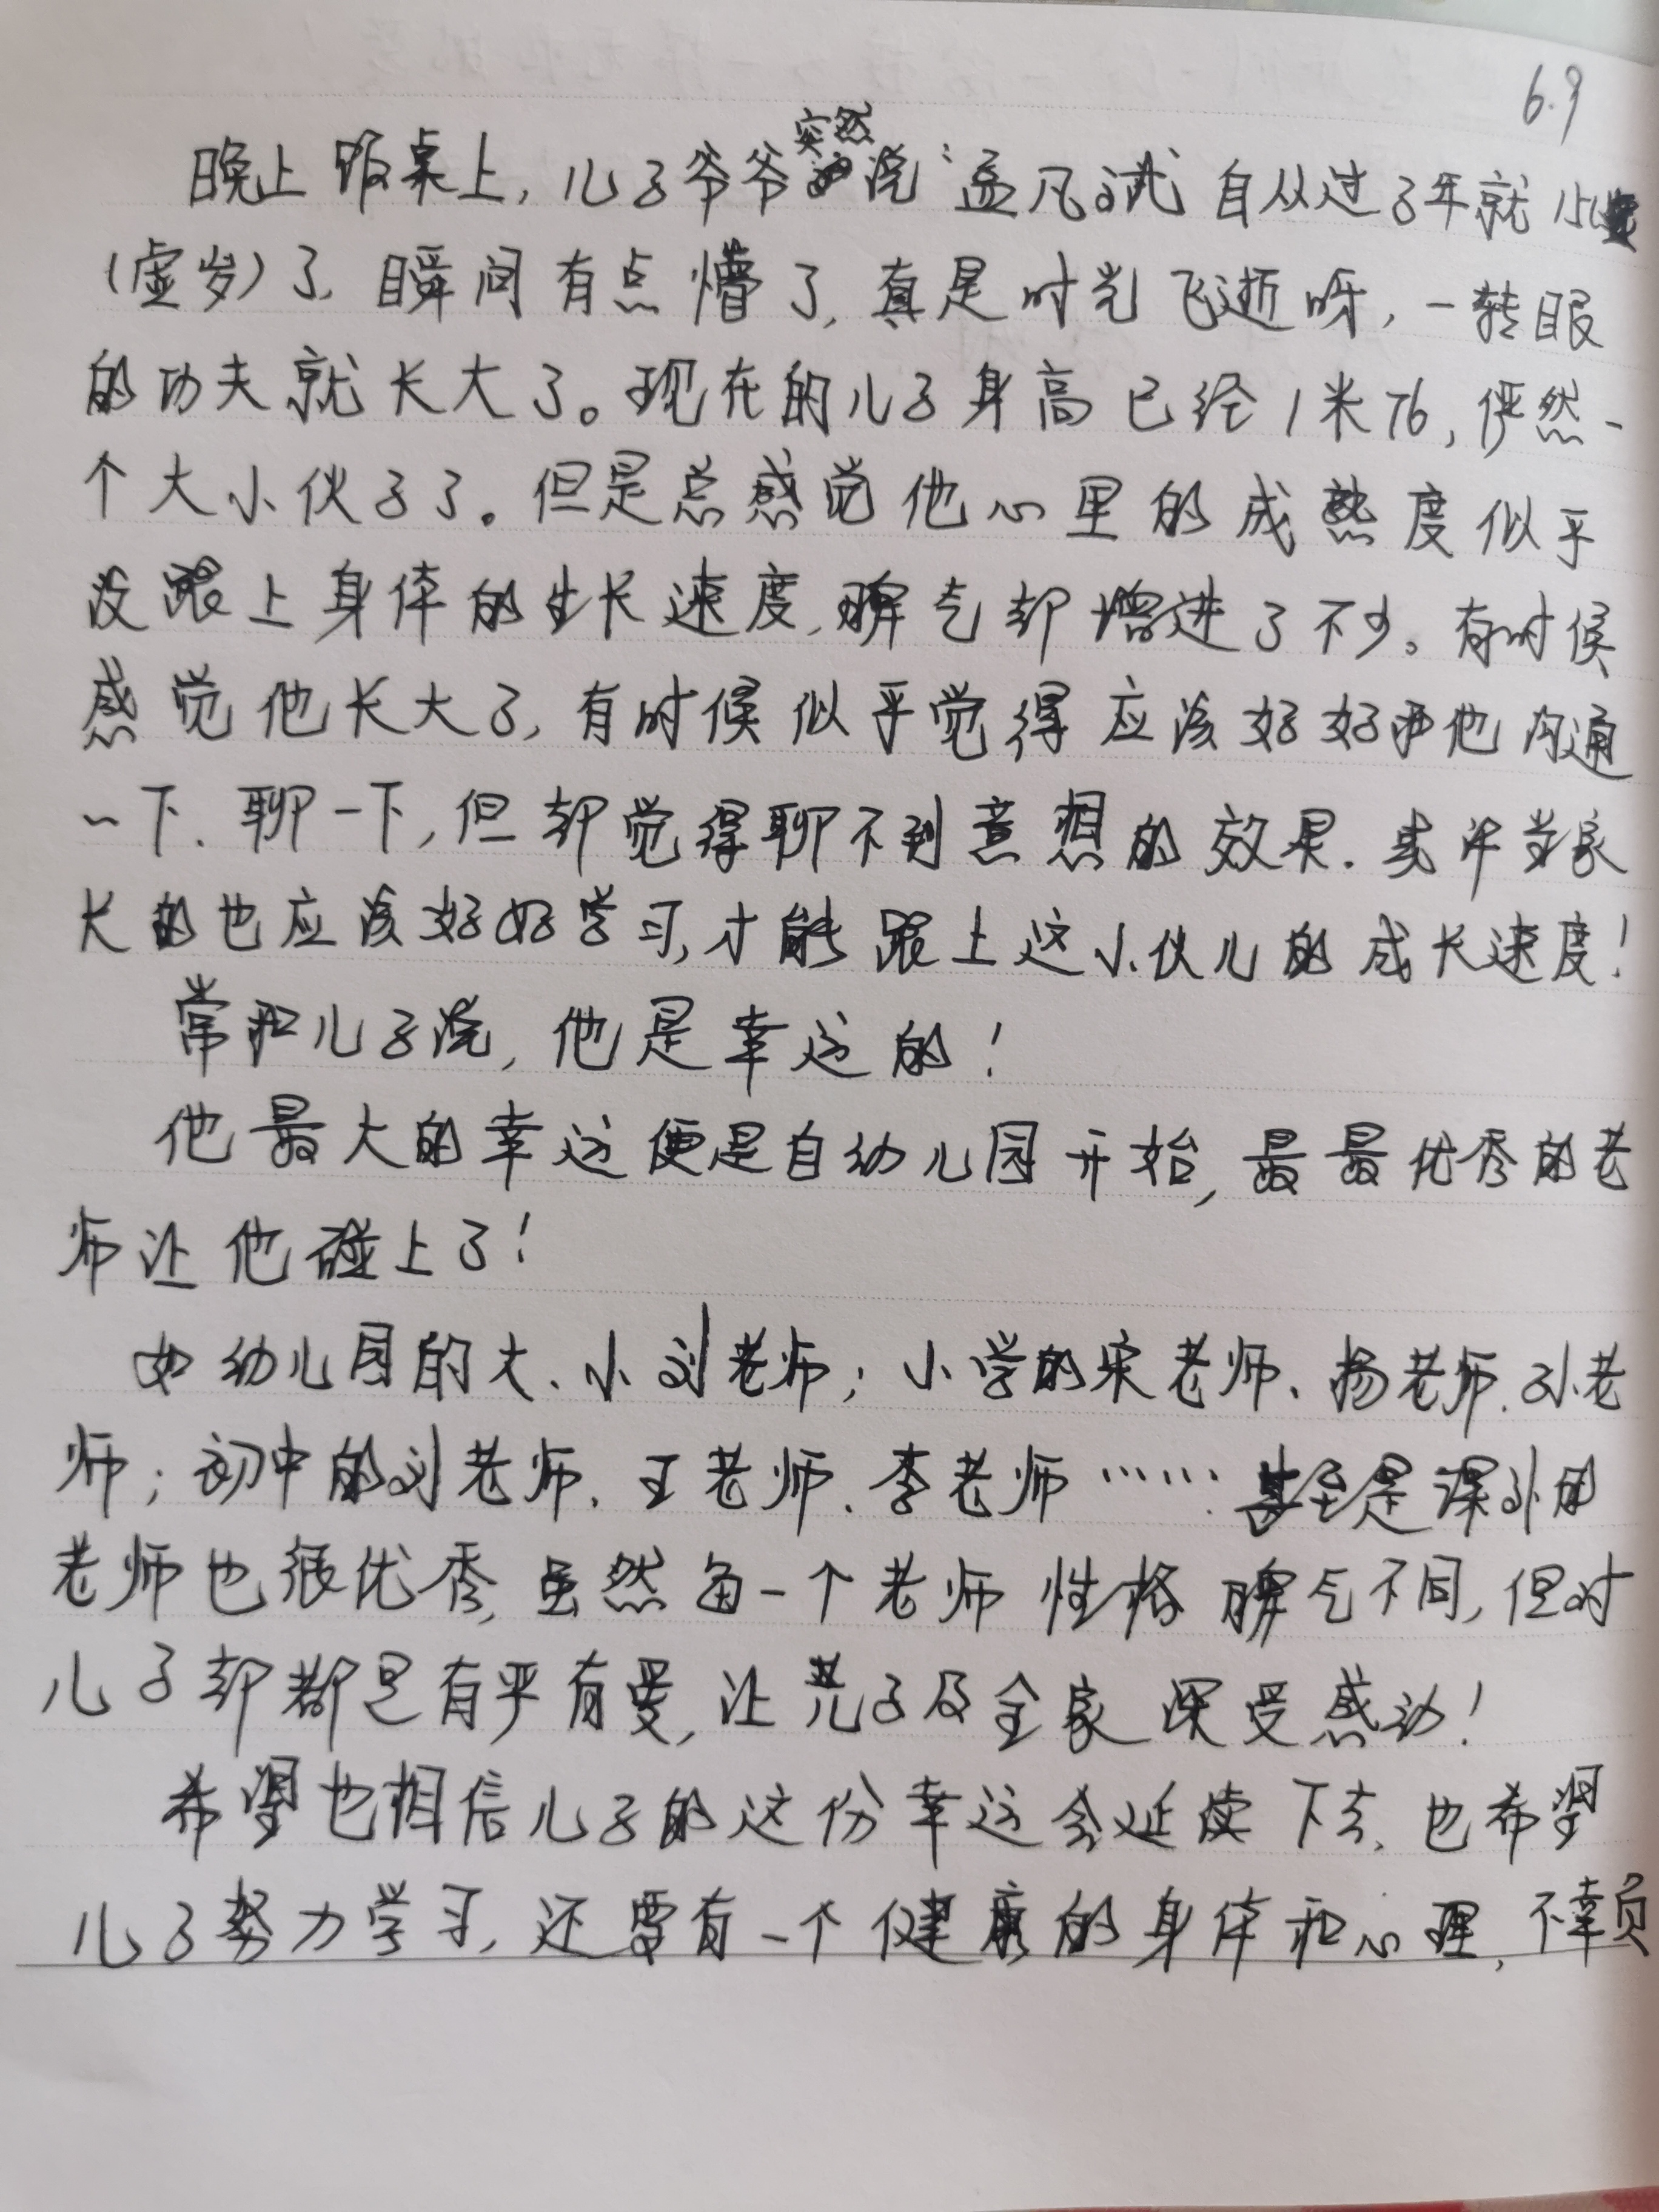 6.9
晚上饭桌上，儿子爷爷突然说：孟凡试自从过了年就15
（虚岁）了，瞬间有点懵了，真是时光飞逝呀，一转眼
的功夫就长大了。现在的儿子身高已经1米76，俨然一
个大小伙子了。但是总感觉他心里的成熟度似乎
没跟上身体的生长速度，脾气却增进了不少。有时候
感觉他长大了，有时候似乎觉得应该好好和他沟通
一下、聊一下，但却觉得聊不到意想的效果。或许当家
长的也应该好好学习，才能跟上这小伙儿的成长速度！
常和儿子说，他是幸运的！
他最大的幸运便是自幼儿园开始，最最优秀的老
师让他碰上了！
如幼儿园的大、小刘老师；小学的宋老师、杨老师、孙老
师；初中的刘老师、王老师、李老师……甚至是课外的
老师也很优秀，虽然每一个老师性格脾气不同，但对
儿子却都是有严有爱，让儿子及全家深受感动！
希望也相信儿子的这份幸运会延续下去，也希望
儿子努力学习，还要有一个健康的身体和心理，不辜负